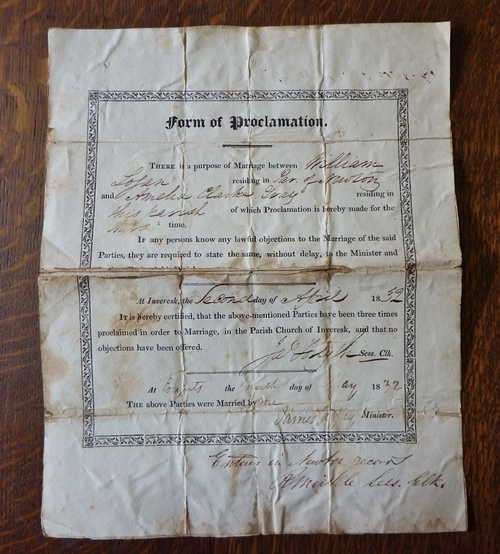 Form of Proclamation.
There is a purpose of Marriage between William
Logan residing in Par. of Newton
and Amelia Clark Gray residing in
this parish of which Proclamation is hereby made for the
time.
If any persons know any lawful objections to the Marriage of the said
Parties, they are required to state the same, without delay, to the Minister and
At Inveresk, the Second day of April 1832
It is hereby certified, that the above-mentioned Parties have been three times
proclaimed in order to Marriage, in the Parish Church of Inveresk, and that no
objections have been offered.
Sess. Clk.
At the day of 18
The above Parties were Married by me
James Minister.
in Newton records
Ses. Clk.